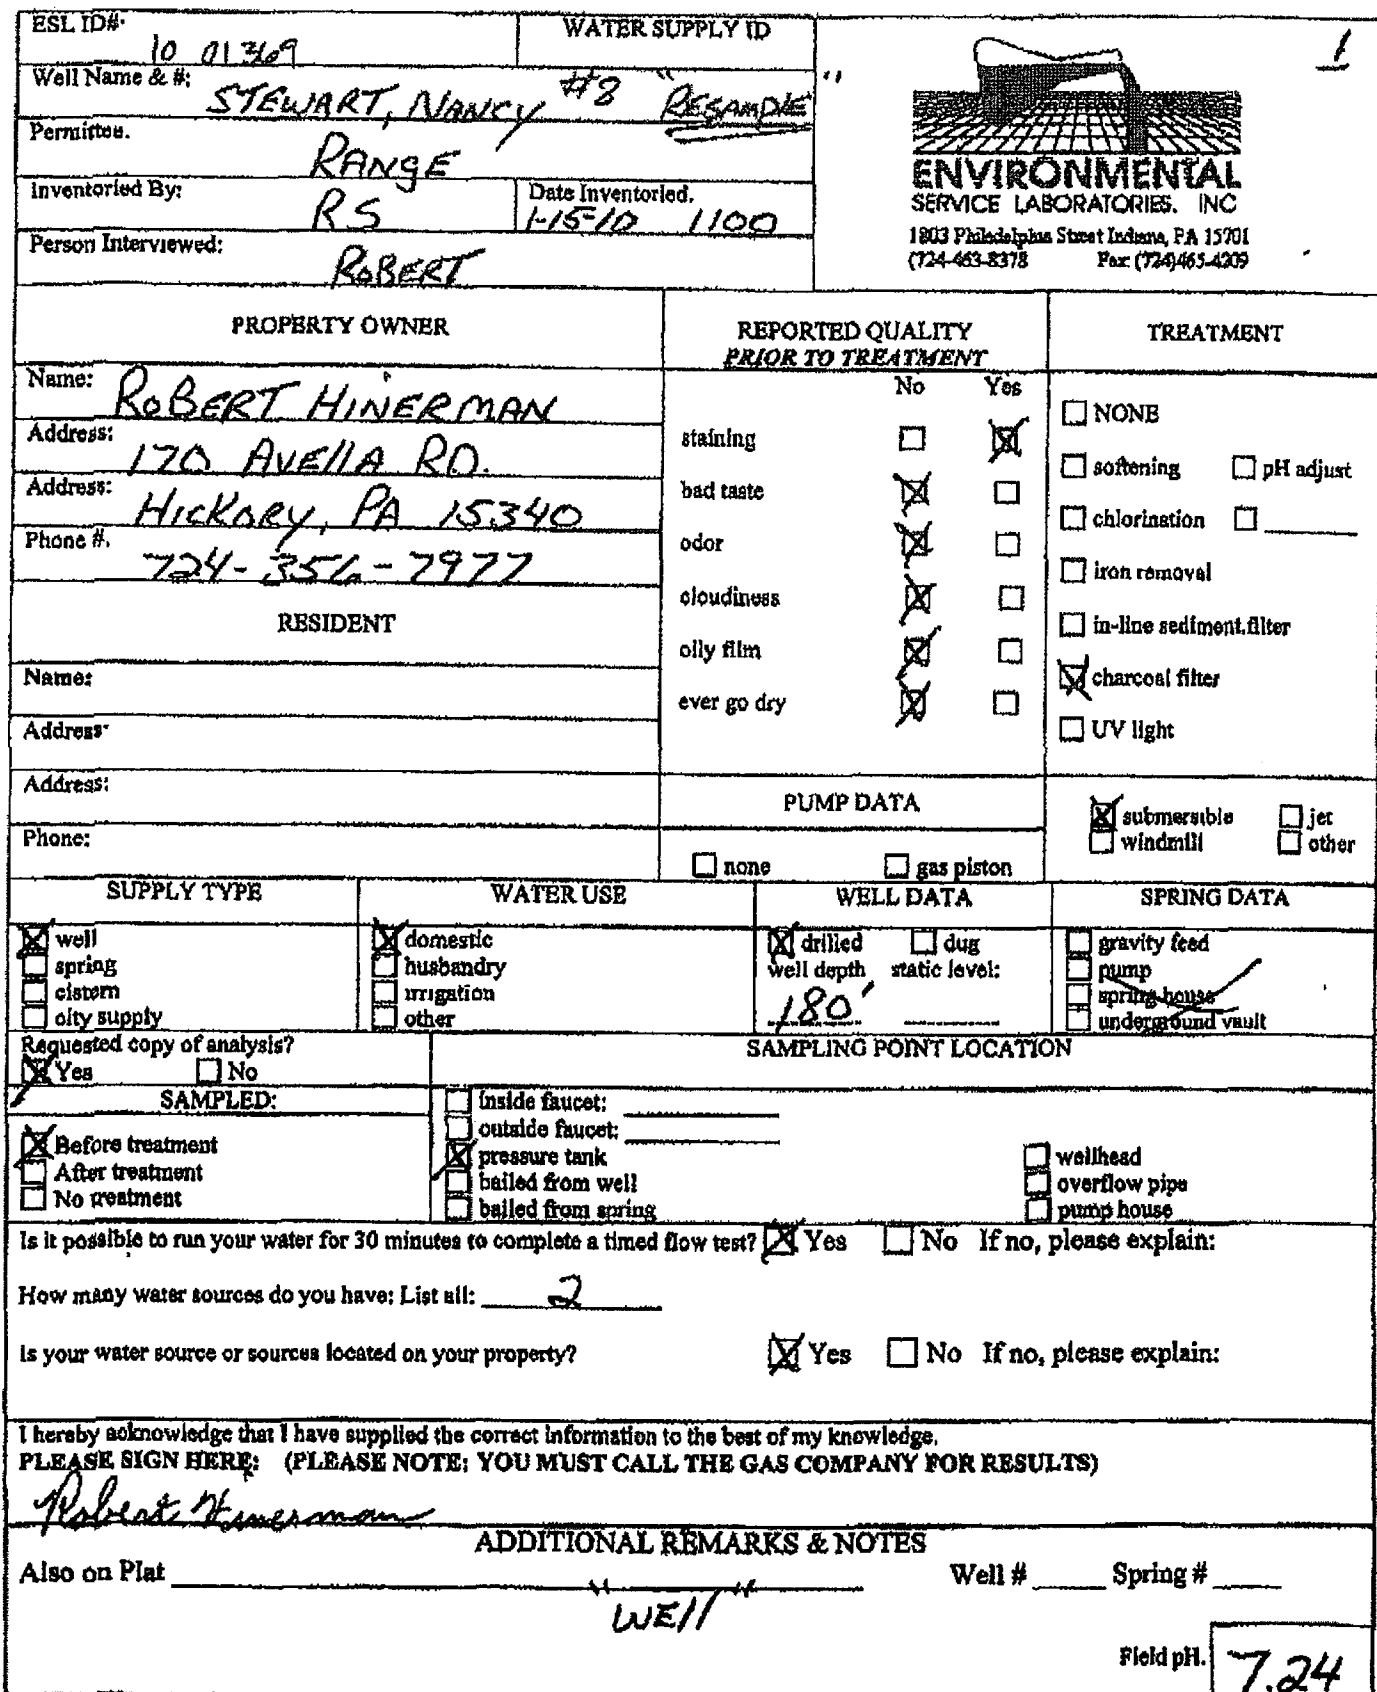 ESL ID#· 10 01369
WATER SUPPLY ID
1
Well Name & #: STEWART, NANCY #8 "RESAMPLE"
Permittee. RANGE
Inventoried By: RS
Date Inventoried. 1-15-10 1100
Person Interviewed: ROBERT
ENVIRONMENTAL
SERVICE LABORATORIES, INC
1803 Philadelphia Street Indiana, PA 15701
(724-463-8378 Fax: (724)465-4209
PROPERTY OWNER
Name: ROBERT HINERMAN
Address: 170 AVELLA RD.
Address: HICKORY, PA 15340
Phone #. 724-356-7977
RESIDENT
Name:
Address·
Address:
Phone:
REPORTED QUALITY
PRIOR TO TREATMENT
No Yes
staining
bad taste
odor
cloudiness
oily film
ever go dry
TREATMENT
NONE
softening pH adjust
chlorination
iron removal
in-line sediment.filter
charcoal filter
UV light
PUMP DATA
none gas piston
submersible jet
windmill other
SUPPLY TYPE
well
spring
cistern
city supply
WATER USE
domestic
husbandry
irrigation
other
WELL DATA
drilled dug
well depth static level:
180'
SPRING DATA
gravity feed
pump
spring house
underground vault
Requested copy of analysis?
Yes No
SAMPLED:
Before treatment
After treatment
No treatment
SAMPLING POINT LOCATION
Inside faucet:
outside faucet:
pressure tank
bailed from well
bailed from spring
wellhead
overflow pipe
pump house
Is it possible to run your water for 30 minutes to complete a timed flow test? Yes No If no, please explain:
How many water sources do you have: List all: 2
Is your water source or sources located on your property? Yes No If no, please explain:
I hereby acknowledge that I have supplied the correct information to the best of my knowledge.
PLEASE SIGN HERE: (PLEASE NOTE: YOU MUST CALL THE GAS COMPANY FOR RESULTS)
Robert Hinerman
ADDITIONAL REMARKS & NOTES
Also on Plat Well # Spring #
"WELL"
Field pH. 7.24